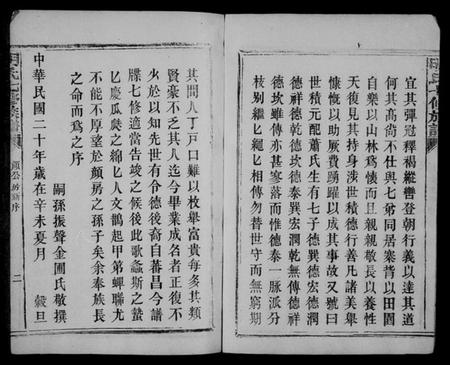 宜其彈冠釋褐縱轡登朝行義以達其道
何其高尚不仕與七弟同居棠苔以田園
自樂以山林爲懷而且親親敬長以養性
天後復見其持身涉世積德行善凡諸美舉
慷慨以助厥費踴躍以成其事故又號曰
世積元配蕭氏生有七子德巽德宏德潤
德祥德乾德坎德泰巽宏潤乾無傳德祥
德坎雖傳亦甚寥落而惟德泰一脈派分
枝别繼繼相傳勿替世守而無窮期
其間人丁戸口難以枚舉富貴每多其類
賢豪不乏其人迄今畢業成名者正復不
少於以知先世有令德後裔自蕃昌今譜
牒七修適當告竣之候後此歌螽斯之蟄
慶瓜瓞之綿人文鵲起甲弟蟬聯尤
不能不厚望於顔房之孫子矣余奉族長
之命而爲之序
嗣孫振聲金圃氏敬撰
中華民國二十年歲在辛未夏月 穀旦
公房新序
二